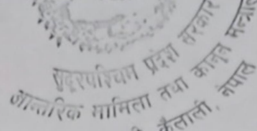 सुदूरपश्चिम प्रदेश सरकार
आन्तरिक मामिला तथा कानून मन्त्रा
कैलाली, नेपाल